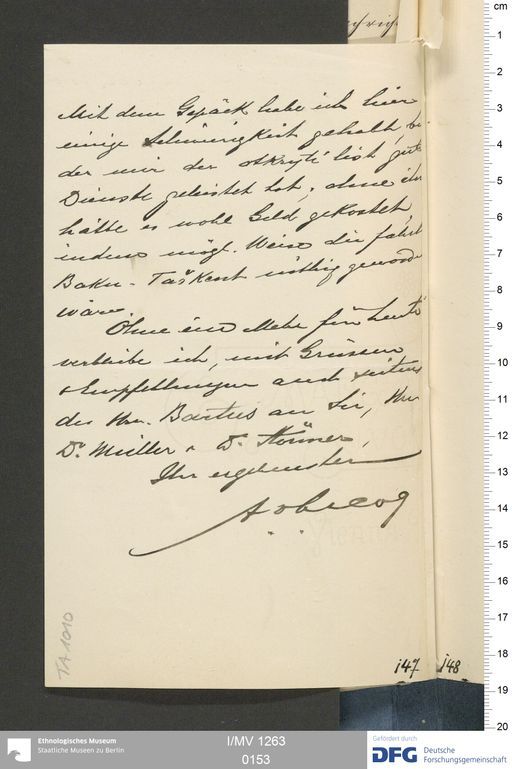 Mit dem Gepäck habe ich hier
einige Schwierigkeit gehabt, bei
der mir der otkrytij list gute
Dienste geleistet hat; ohne ihn
hätte es wohl Geld gekostet,
indem mögl. Weise die fahrt
Baku-Taškent nöthig geworden
wäre.
Ohne ein Mehr für heute
verbleibe ich, mit Grüssen
& Empfehlungen auch seitens
des Hrn. Bartus an Sie, Hrn
Dr. Müller & Dr. Stönner,
Ihr ergebenster
AvLeCoq
TA 1010
147
148
cm
1
2
3
4
5
6
7
8
9
10
11
12
13
14
15
16
17
18
19
20
Ethnologisches Museum
Staatliche Museen zu Berlin
I/MV 1263
0153
Gefördert durch
DFG Deutsche
Forschungsgemeinschaft